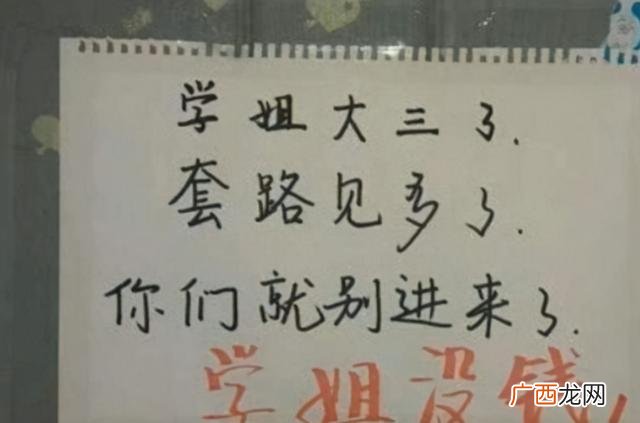 学姐大三了.
套路见多了.
你们就别进来了.
学姐没钱
广西龙网